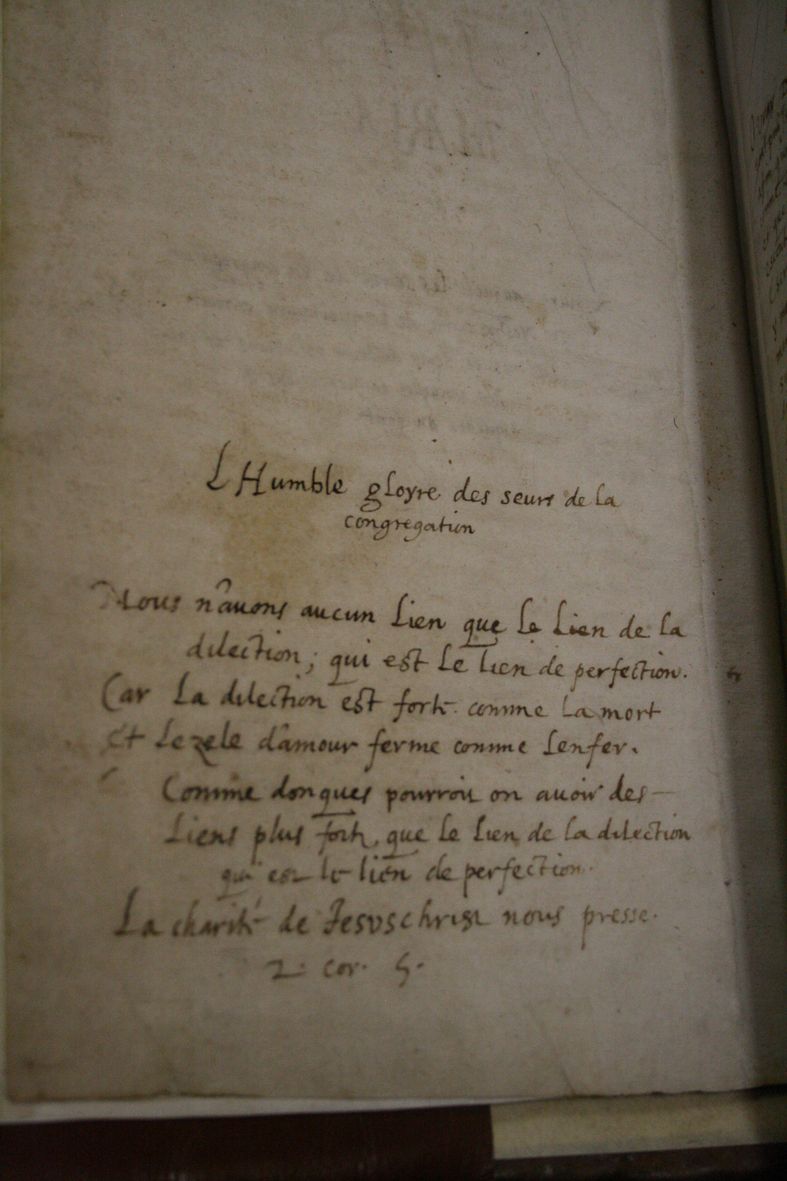 L Humble gloyre des seurs de la
congregation
Nous n'auons aucun Lien que le Lien de la
dilection, qui est Le lien de perfection.
Car La dilection est forte comme La mort
Et Le zele d'amour ferme comme Lenfer.
Comme donques pourroit on auoir des
Liens plus forts, que le lien de la dilection
qui est le lien de perfection.
La charité de Jesuschrist nous presse.
2. cor. 5.